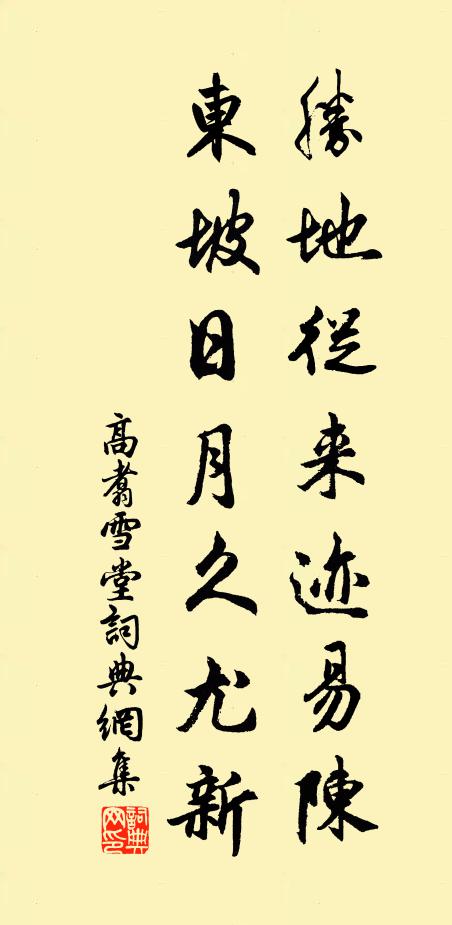 勝地從来迹易陳
東坡日月久尤新
高翥雪堂詞典網集
詞典网印